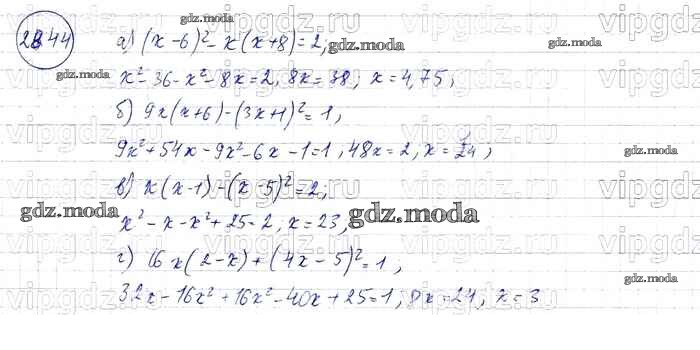 28.44
а) (x-6)² - x(x+8) = 2,
x² - 36 - x² - 8x = 2, 8x = 38; x = 4,75;
б) 9x(x+6) - (3x+1)² = 1,
9x² + 54x - 9x² - 6x - 1 = 1, 48x = 2, x = 1/24;
в) x(x-1) - (x-5)² = 2;
x² - x - x² + 25 = 2, x = 23,
г) 16x(2-x) + (4x-5)² = 1,
32x - 16x² + 16x² - 40x + 25 = 1; 8x = 24, x = 3
vipgdz.ru
gdz.moda